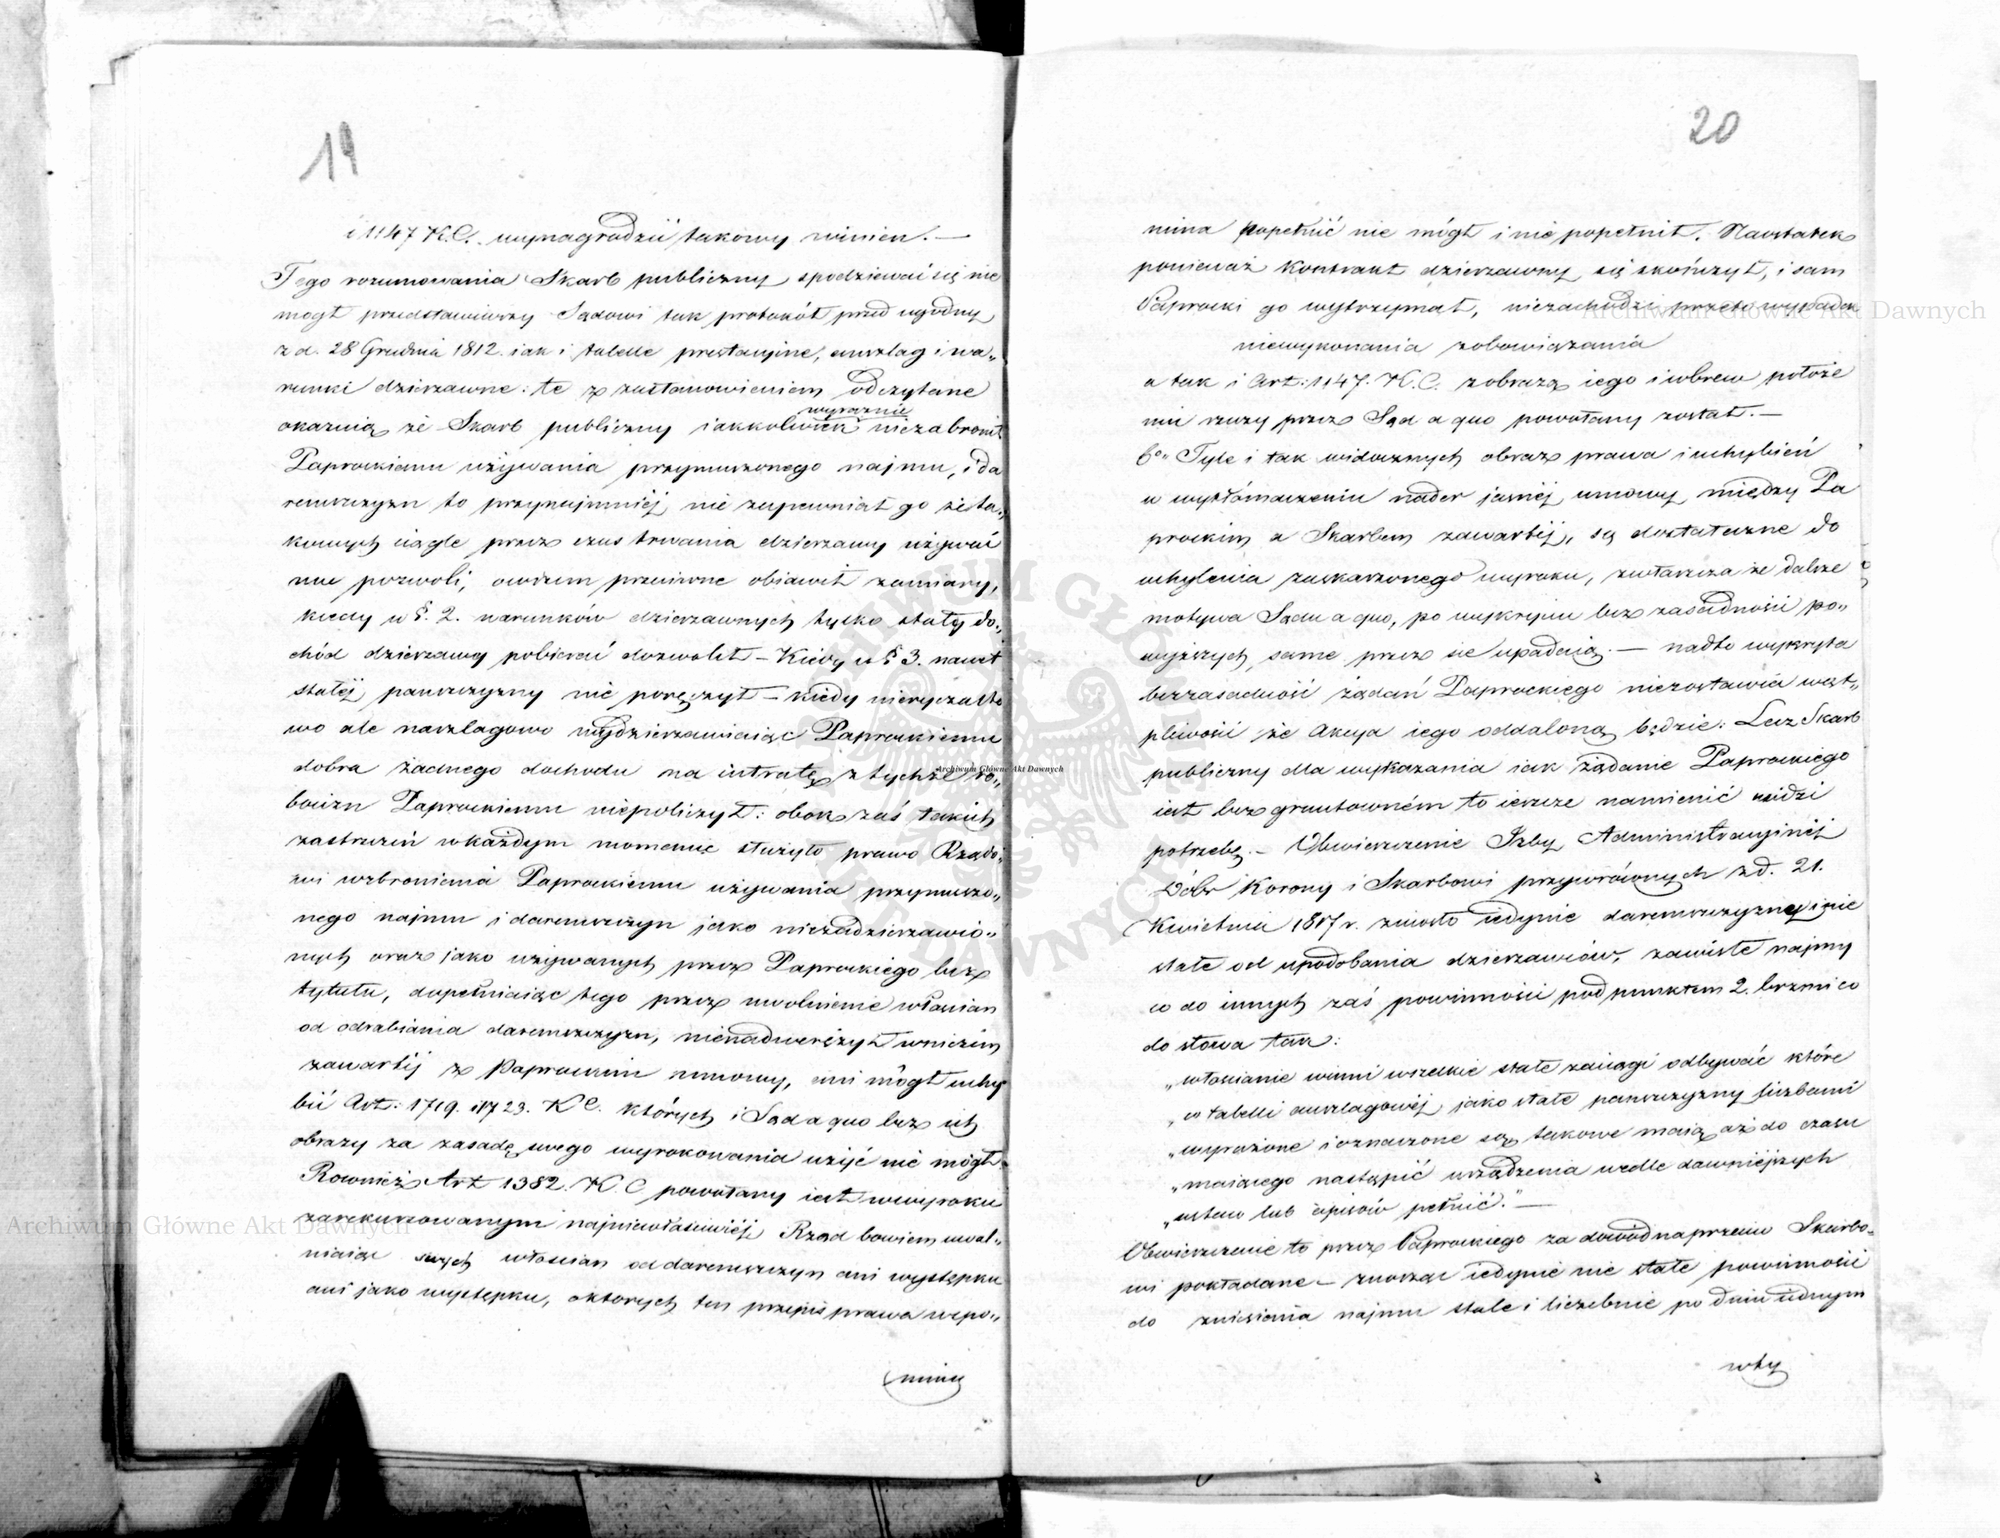 19
i 1147 K.C. wynagrodzić takowy winien. —
Tego rozumowania Skarb publiczny spodziewać się nie
mógł przedstawiwszy Sądowi tak protokół przed ugodny
z d. 28 Grudnia 1812. iak i tabelle prestacyine, anszlag i wa„
runki dzierzawne: te z zastanowieniem odczytane
okazuią że Skarb publiczny iakkolwiek wyraznie niezabronił
Paprockiemu używania przymuszonego najmu, i da
remszczyzn to przynajmniéj nie zapewniał go że ta„
kowych ciągle przez czas trwania dzierzawy używać
mu pozwoli, owszem przeciwne obiawił zamiary,
kiedy w §. 2. warunków dzierzawnych tylko stały do„
chód dzierzawcy pobierać dozwolił – Kiedy w § 3. nawet
stałéj pańszczyzny nie poręczył – kiedy nieryczałto
wo ale naszlagowo wydzierzawiaiąc Paprockiemu
dobra żadnego dochodu na intratę z tychże ro„
bocizn Paprockiemu niepoliczył: obok zaś takich
zastrzeżeń w każdym momencie służyło prawo Rządo„
wi wzbronienia Paprockiemu używania przymuszo„
nego najmu i daremszczyzn jako niezadzierzawio„
nych oraz jako używanych przez Paprockiego bez
tytułu, dopełniaiąc tego przez uwolnienie włościan
od odrabiania daremszczyzn, nienadwerężył wniczém
zawartéj z Paprockim umowy, ani mógł uchy
bić Art: 1719. i 1723. K C. których i Sąd a quo bez ich
obrazy za zasadę swego wyrokowania użyć nie mógł.
Rownież Art 1382. K. C powołany iest w wyroku
zarekursowanym najniewłaściwiéj. Rząd bowiem uwal„
niaiąc swych włościan od daremszczyzn ani występku
ani jako występku, o których ten przepis prawa wspo„
mina
20
mina popełnić nie mógł i nie popełnił. Naostatek
ponieważ Kontrakt dzierzawny się skończył, i sam
Paprocki go wytrzymał, niezachodzi przeto wypadek
niewykonania zobowiązania
a tak i Art: 1147. K.C. z obrazą iego i wbrew położe
niu rzeczy przez Sąd a quo powołany został. —
6o„ Tyle i tak widocznych obraz prawa i uchybień
w wytłómaczeniu nader jasnéj umowy między Pa
prockim a Skarbem zawartéj, są dostateczne do
uchylenia zaskarzonego wyroku, zwłaszcza że dalsze
motywa Sądu a quo, po wykryciu bez zasadności po„
wyższych same przez się upadaią. — nadto wykryta
bezzasadność żądań Paprockiego niezostawia wąt„
pliwości że Akcya iego oddaloną będzie: Lecz Skarb
publiczny dla wykazania iak żądanie Paprockiego
iest bezgruntowném to ieszcze namienić widzi
potrzebę. – Obwieszczenie Izby Administracyinéj
Dóbr Korony i Skarbowi przywróconych z d. 21.
Kwietnia 1817 r. zniosło iedynie daremszczyzny i nie
stałe od upodobania dzierzawców, zawisłe najmy
co do innych zaś powinności pod punktem 2. brzmi co
do słowa tak:
„włościanie winni wszelkie stałe zaciągi odbywać które
„w tabelli anszlagowéj jako stałe pańszczyzny liczbami
„wyrażone i oznaczone są, takowe maią aż do czasu
„maiącego nastąpić urządzenia wedle dawniejszych
„ustaw lub opisów pełnić." —
Obwieszczenie to przez Paprockiego za dowód naprzeciw Skarbo„
wi pokładane – znosząc iedynie nie stałe powinności
do zniesienia najmu stale i liczebnie po dniu iednym
wty